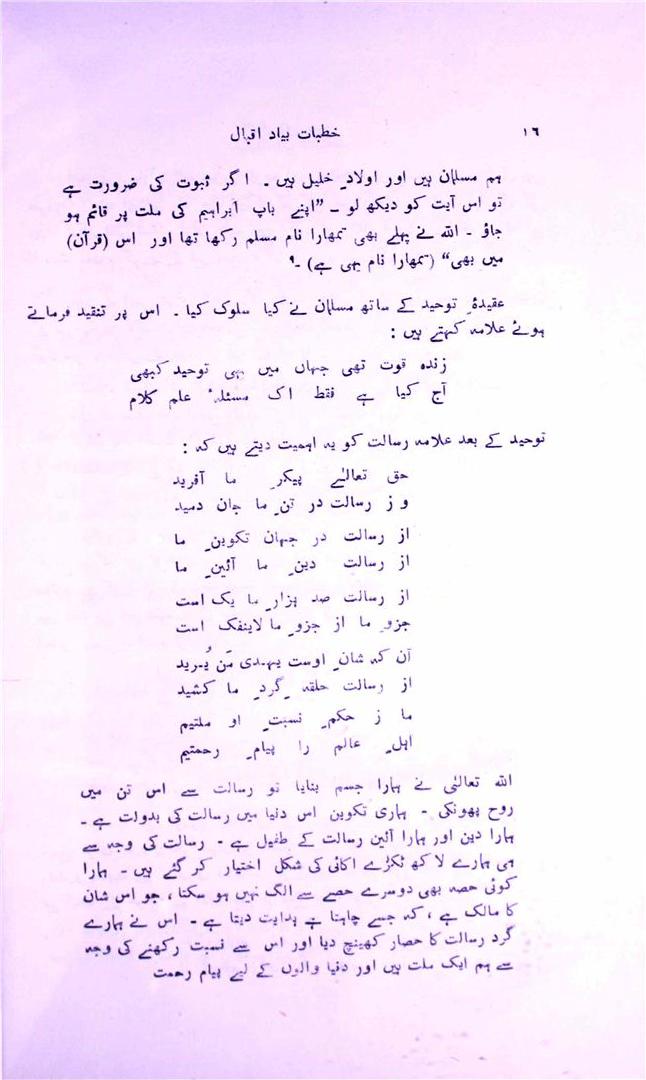 ۱٦ خطبات بیاد اقبال
ہم مسلمان ہیں اور اولادِ خلیل ہیں ۔ اگر ثبوت کی ضرورت ہے
تو اس آیت کو دیکھ لو ۔ ”اپنے باپ ابراہیم کی ملت پر قائم ہو
جاؤ ۔ اللہ نے پہلے بھی تمھارا نام مسلم رکھا تھا اور اس (قرآن)
میں بھی“ (تمھارا نام یہی ہے) ۔۹
عقیدۂ توحید کے ساتھ مسلمان نے کیا سلوک کیا ۔ اس پر تنقید فرماتے
ہوئے علامہ کہتے ہیں :
زندہ قوت تھی جہاں میں یہی توحید کبھی
آج کیا ہے فقط اک مسئلۂ علم کلام
توحید کے بعد علامہ رسالت کو یہ اہمیت دیتے ہیں کہ :
حق تعالیٰ پیکرِ ما آفرید
و ز رسالت در تنِ ما جان دمید
از رسالت در جہان تکوینِ ما
از رسالت دینِ ما آئینِ ما
از رسالت صد ہزارِ ما یک است
جزوِ ما از جزوِ ما لاینفک است
آن کہ شانِ اوست یہدی مَن یُرید
از رسالت حلقہ گردِ ما کشید
ما ز حکمِ نسبتِ او ملتیم
اہلِ عالم را پیامِ رحمتیم
اللہ تعالیٰ نے ہمارا جسم بنایا تو رسالت سے اس تن میں
روح پھونکی ۔ ہماری تکوین اس دنیا میں رسالت کی بدولت ہے ۔
ہمارا دین اور ہمارا آئین رسالت کے طفیل ہے ۔ رسالت کی وجہ سے
ہی ہمارے لاکھ ٹکڑے اکائی کی شکل اختیار کر گئے ہیں ۔ ہمارا
کوئی حصہ بھی دوسرے حصے سے الگ نہیں ہو سکتا ، جو اس شان
کا مالک ہے ، کہ جسے چاہتا ہے ہدایت دیتا ہے ۔ اس نے ہمارے
گرد رسالت کا حصار کھینچ دیا اور اس سے نسبت رکھنے کی وجہ
سے ہم ایک ملت ہیں اور دنیا والوں کے لیے پیام رحمت